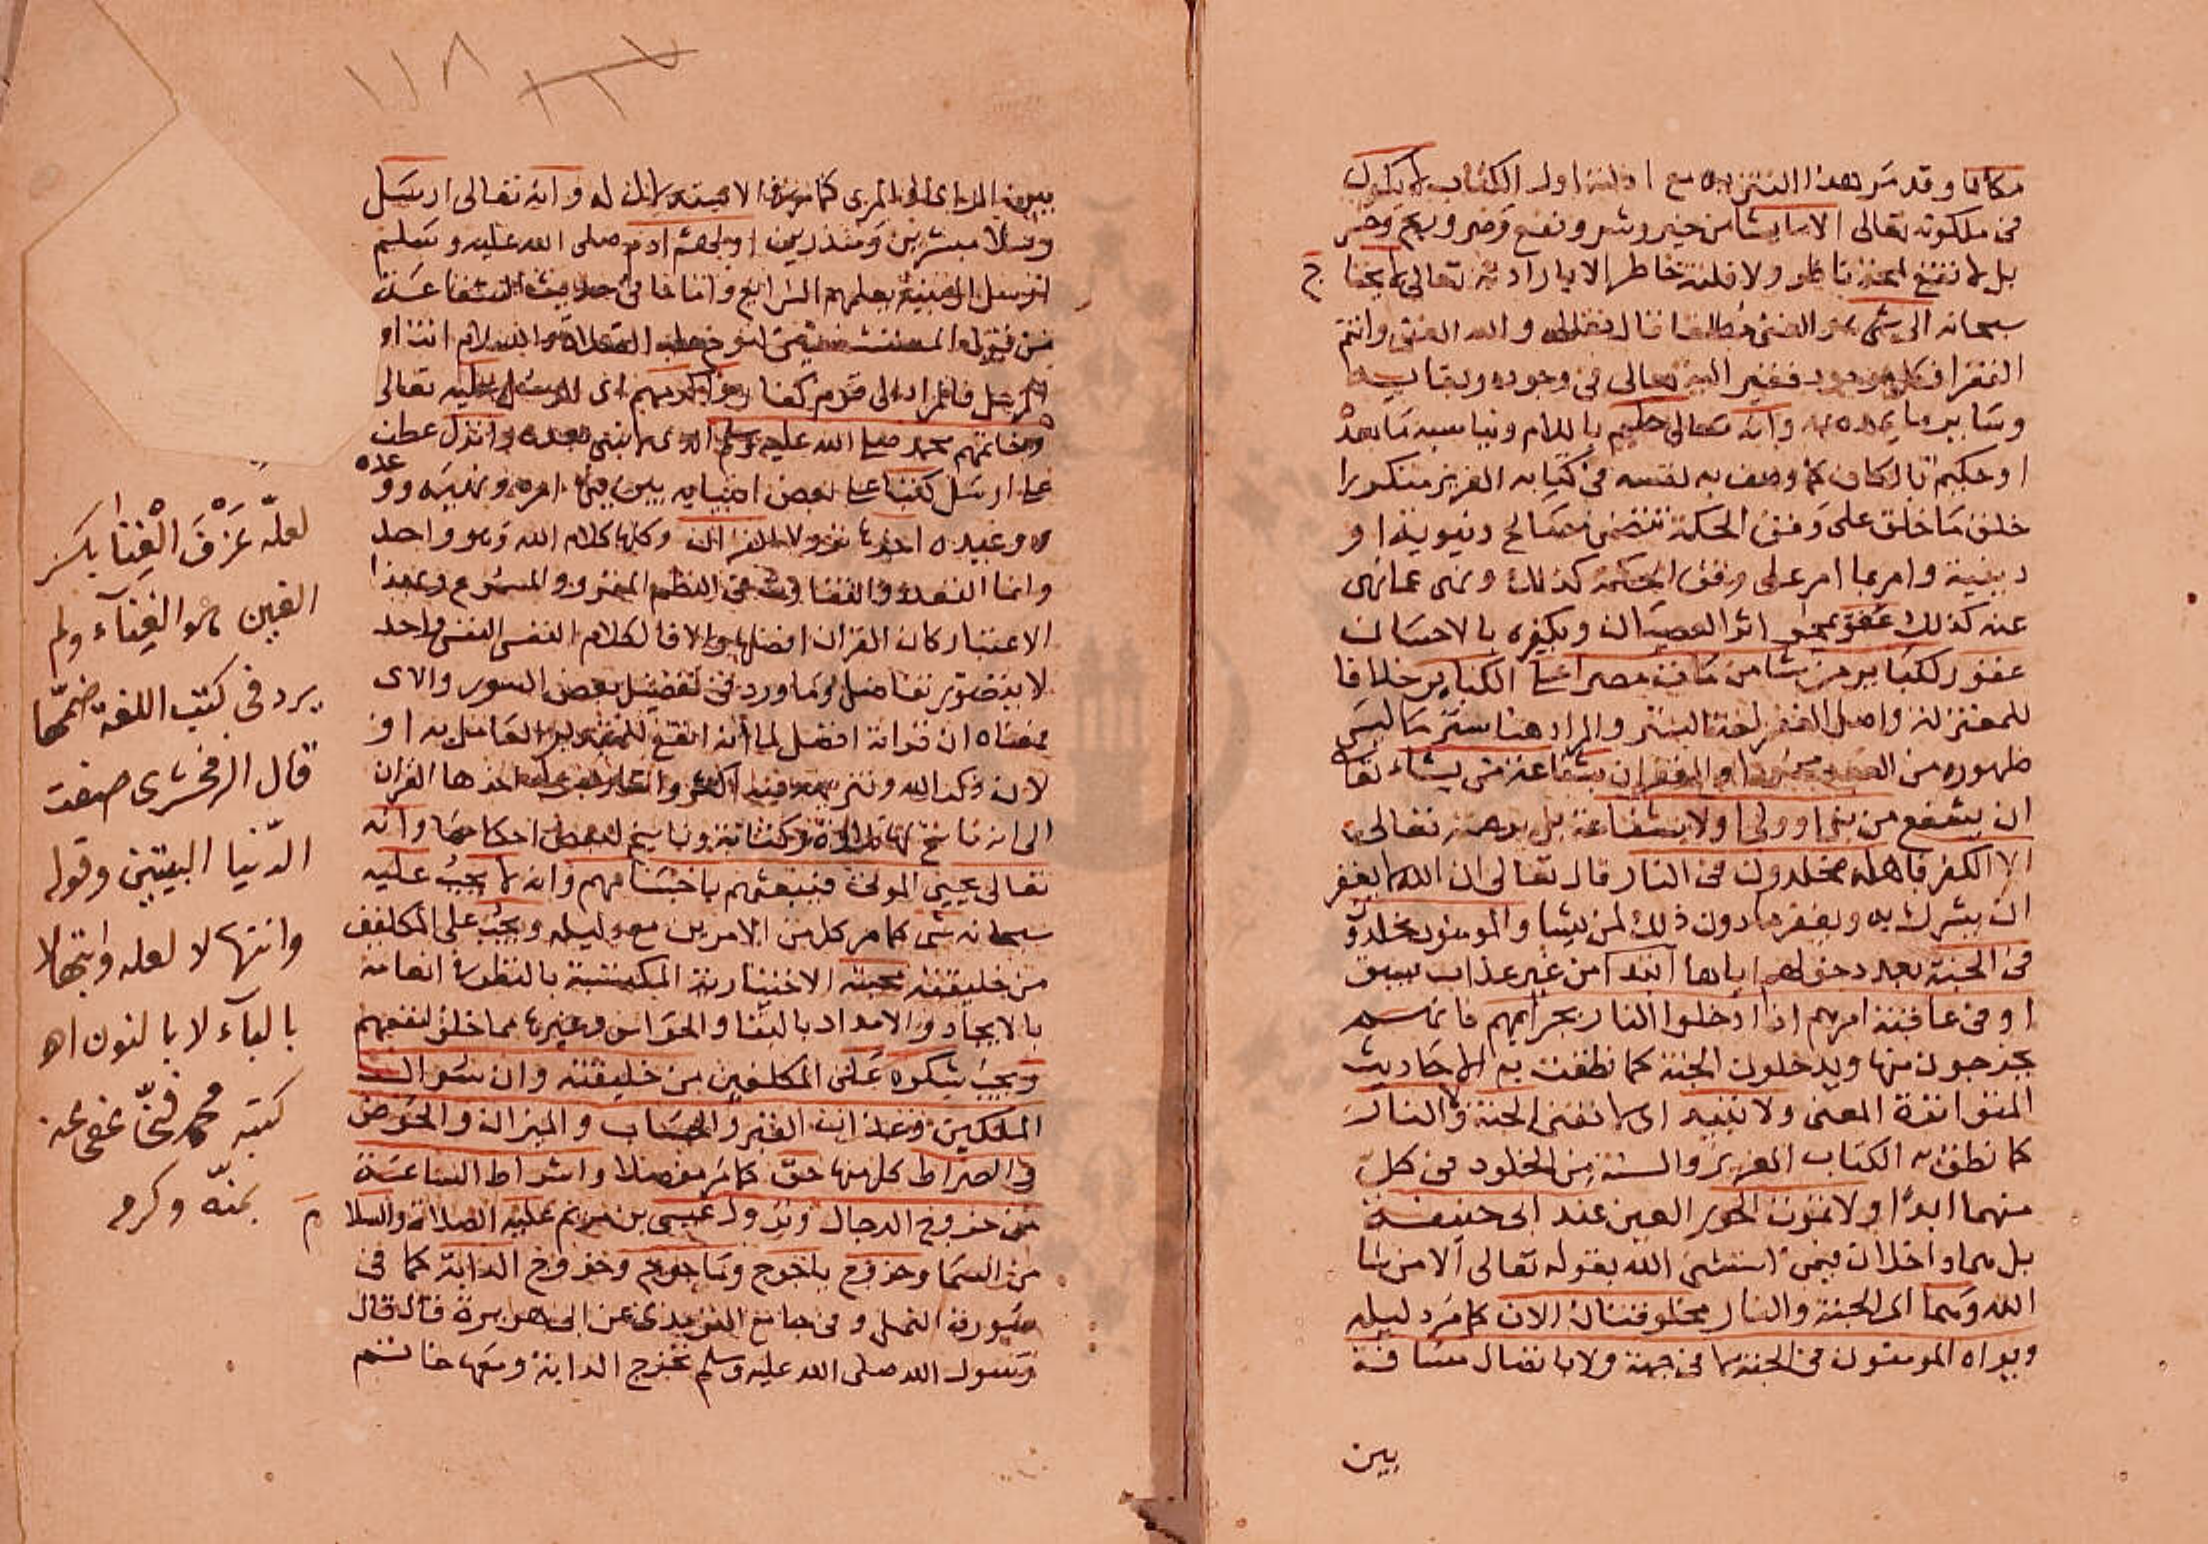 مكانا وقد مر بهذا التنزيه مع ادلته اول الكتاب لا يكون
فى ملكوته تعالى الا ما يشا من خير وشر ونفع وضر وربح وخسر
بل لا تقع لمحة ناظر ولا فلتة خاطر الا بارادته تعالى لا يحتاج
سبحانه الى شى هو الغنى مطلقا قال تعالى والله الغنى وانتم
الفقرا فكل موجود فقير اليه تعالى فى وجوده وبقايه
وساير ما يمده به وانه تعالى حليم باللام ويناسبه ما بعده
او حكيم بالكاف كما وصف به نفسه فى كتابه العزيز متكررا
خلق ما خلق على وفق الحكمة تتضمن مصالح دنيوية او
دينية وامر بما امر على وفق الحكمة كذلك ونهى عما نهى
عنه كذلك عفو يمحو اثر العصيان ويكفره بالاحسان
غفور للكبا ير من شا من مات مصرا على الكباير خلافا
للمعتزلة واصل الغفر لغة الستر والمراد هنا ستر ما ليس
ظهوره من العبد محمودا والغفران بشفاعة من يشاء تعا
ان يشفع من نبى او ولى او لا بشفاعة بل برحمته تعالى
الا الكفر فاهله مخلدون فى النار قال تعالى ان الله لا يغفر
ان يشرك به ويغفر ما دون ذلك لمن يشا والمومنون مخلدون
فى الجنة بعد دخولهم اياها ابدا من غير عذاب يسبق
او فى عاقبة امرهم اذا ادخلوا النار بجرايمهم فانهم
يخرجون منها ويدخلون الجنة كما نطقت به الاحاديث
المتواترة المعنى ولا تبيد اى لا تفنى الجنة ولا النار
كما نطق به الكتاب العزيز والسنة من الخلود فى كل
منهما ابدا ولا تموت الحور العين عند ابى حنيفة
بل هى داخلات فيمن استثنى الله بقوله تعالى الا من شا
الله وهما اى الجنة والنار مخلوقتان الان كما مر دليله
ويراه المومنون فى الجنة لا فى جهة ولا باتصال مسافة
بين
١١٨
بين الرايى والمرى كما مر فى الا
رسلا مبشرين ومنذرين اولهم ادم صلى الله عليه وسلم
ارسل الى بنيه يعلمهم الشرايع واما ما فى حديث الشفاعة
من قول المستشفعين لنوح عليه الصلاة والسلام انت اول
الرسل فالمراد الى قوم كفار
وخاتمهم محمد صلى الله عليه وسلم الذى لا نبى بعده وانزل عطف
على ارسل كتبا على بعض انبيايه يبين فيها امره ونهيه ووعده
ووعيده اخرها نزولا القران وكلها كلام الله وهو واحد
وانما التعدد والتفاوت فى النظم المقرو والمسموع وبهذا
الاعتبار كان القران افضلها والا فالكلام النفسى واحد
لا يتصور تفاضل وما ورد فى تفضيل بعض السور والاى
معناه ان قراته افضل لما انه انفع للمتدبر العامل به او
لان ذكر الله وتنزيهه فيه اكثر
الى انه ناسخ لها تلاوة وكتابة وناسخ لبعض احكامها وانه
تعالى يحيى الموتى فيبعثهم باجسامهم وانه لا يجب عليه
سبحانه شى كما مر كل من الامرين مع دليله ويجب على المكلفين
من خليقته محبته الاختيارية المكتسبة بالنظر الى انعامه
بالايجاد والامداد بالبقا والحواس وغيرها مما خلق لنفعهم
ويجب شكره على المكلفين من خليقته وان سوال
الملكين وعذاب القبر والحساب والميزان والحوض
والصراط كل منها حق كما مر مفصلا واشراط الساعة
من خروج الدجال ونزول عيسى بن مريم عليه الصلاة والسلام
من السما وخروج ياجوج وماجوج وخروج الدابة كما فى
سورة النمل وفى جامع الترمذى عن ابى هريرة قال قال
رسول الله صلى الله عليه وسلم تخرج الدابة ومعها خاتم
لعله عرق الغنا بكسر
الغين هو الغناء ولم
يرد فى كتب اللغة ضمها
قال الزمخشرى صنفت
الدنيا البيتين وقوله
وانتهالا لعله وابتهالا
بالباء لا بالنون اه
كتبه محمد عفى عنه
بمنه وكرمه